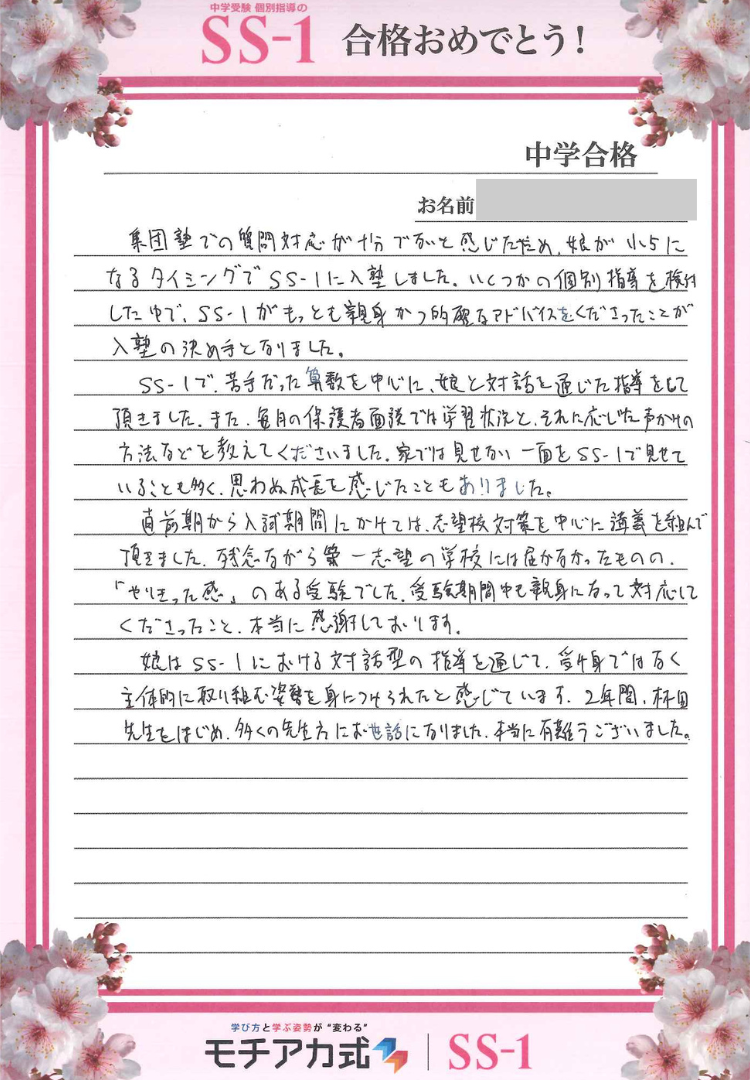 中学受験 個別指導の
SS-1 合格おめでとう!
中学合格
お名前
集団塾での質問対応が十分でないと感じたため、娘が小5に
なるタイミングでSS-1に入塾しました。いくつかの個別指導を検討
した中で、SS-1がもっとも親身かつ的確なアドバイスをくださったことが
入塾の決め手となりました。
SS-1で、苦手だった算数を中心に、娘と対話を通じた指導をして
頂きました。また、毎月の保護者面談では学習状況と、それに応じた声かけの
方法などを教えてくださいました。家では見せない一面をSS-1で見せて
いることも多く、思わぬ成長を感じたこともありました。
直前期から入試期間にかけては、志望校対策を中心に講義を組んで
頂きました。残念ながら第一志望の学校には届かなかったものの、
「やりきった感」のある受験でした。受験期間中も親身になって対応して
くださったこと、本当に感謝しております。
娘はSS-1における対話型の指導を通じて、受け身ではなく
主体的に取り組む姿勢を身につけられたと感じています。2年間、杯田
先生をはじめ、多くの先生方にお世話になりました。本当に有難うございました。
学び方と学ぶ姿勢が"変わる"
モチアカ式 SS-1